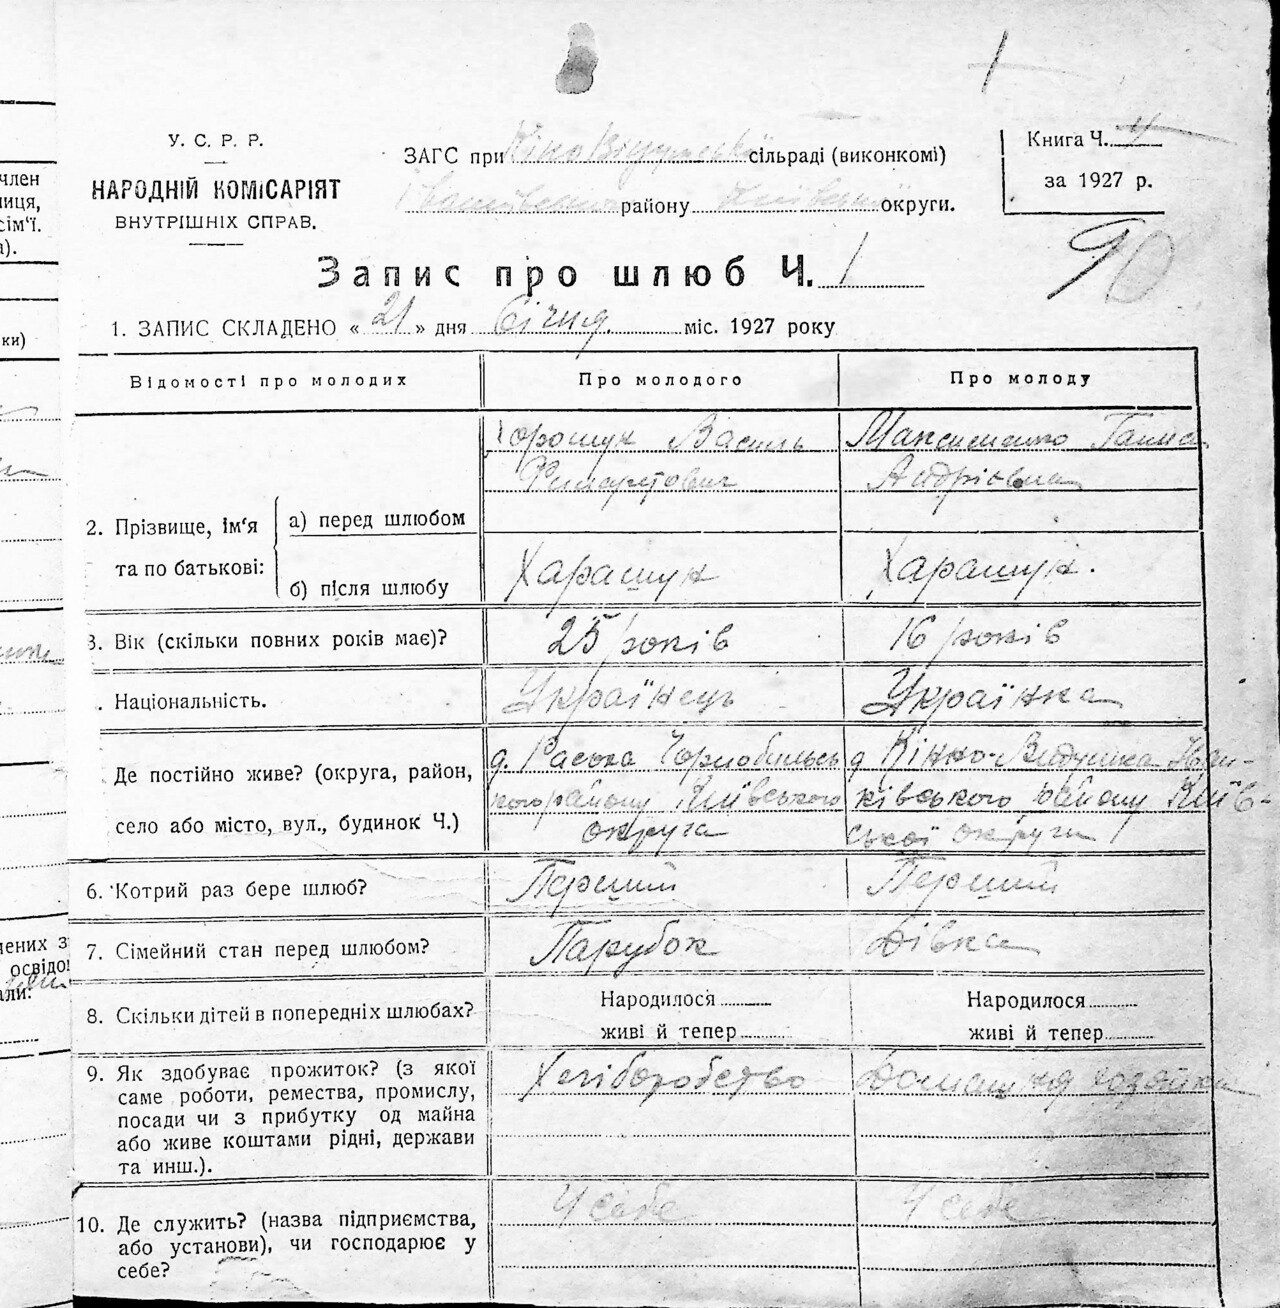 У. С. Р. Р.
НАРОДНІЙ КОМІСАРІЯТ
ВНУТРІШНІХ СПРАВ.
ЗАГС при сільраді (виконкомі)
району Київської округи.
Книга Ч. 4
за 1927 р.
90
Запис про шлюб Ч. 1
1. ЗАПИС СКЛАДЕНО « 21 » дня Січня міс. 1927 року
Відомості про молодих
Про молодого
Про молоду
2. Прізвище, ім'я та по батькові:
а) перед шлюбом
Василь
Максименко Ганна
Андріівна
б) після шлюбу
Харащук
Харащук.
3. Вік (скільки повних років має)?
25 років
16 років
. Національність.
Українець
Українка
Де постійно живе? (округа, район,
село або місто, вул., будинок Ч.)
д. Расоха Чорнобильсь
кого району Київського
округа
д
ківського району Київ-
ської округи
6. Котрий раз бере шлюб?
Перший
Перший
7. Сімейний стан перед шлюбом?
Парубок
Дівка
8. Скільки дітей в попередніх шлюбах?
Народилося
живі й тепер
Народилося
живі й тепер
9. Як здобуває прожиток? (з якої
саме роботи, ремества, промислу,
посади чи з прибутку од майна
або живе коштами рідні, держави
та инш.).
Хліборобство
Домашня хозяйка
10. Де служить? (назва підприємства,
або установи), чи господарює у
себе?
У себе
У себе